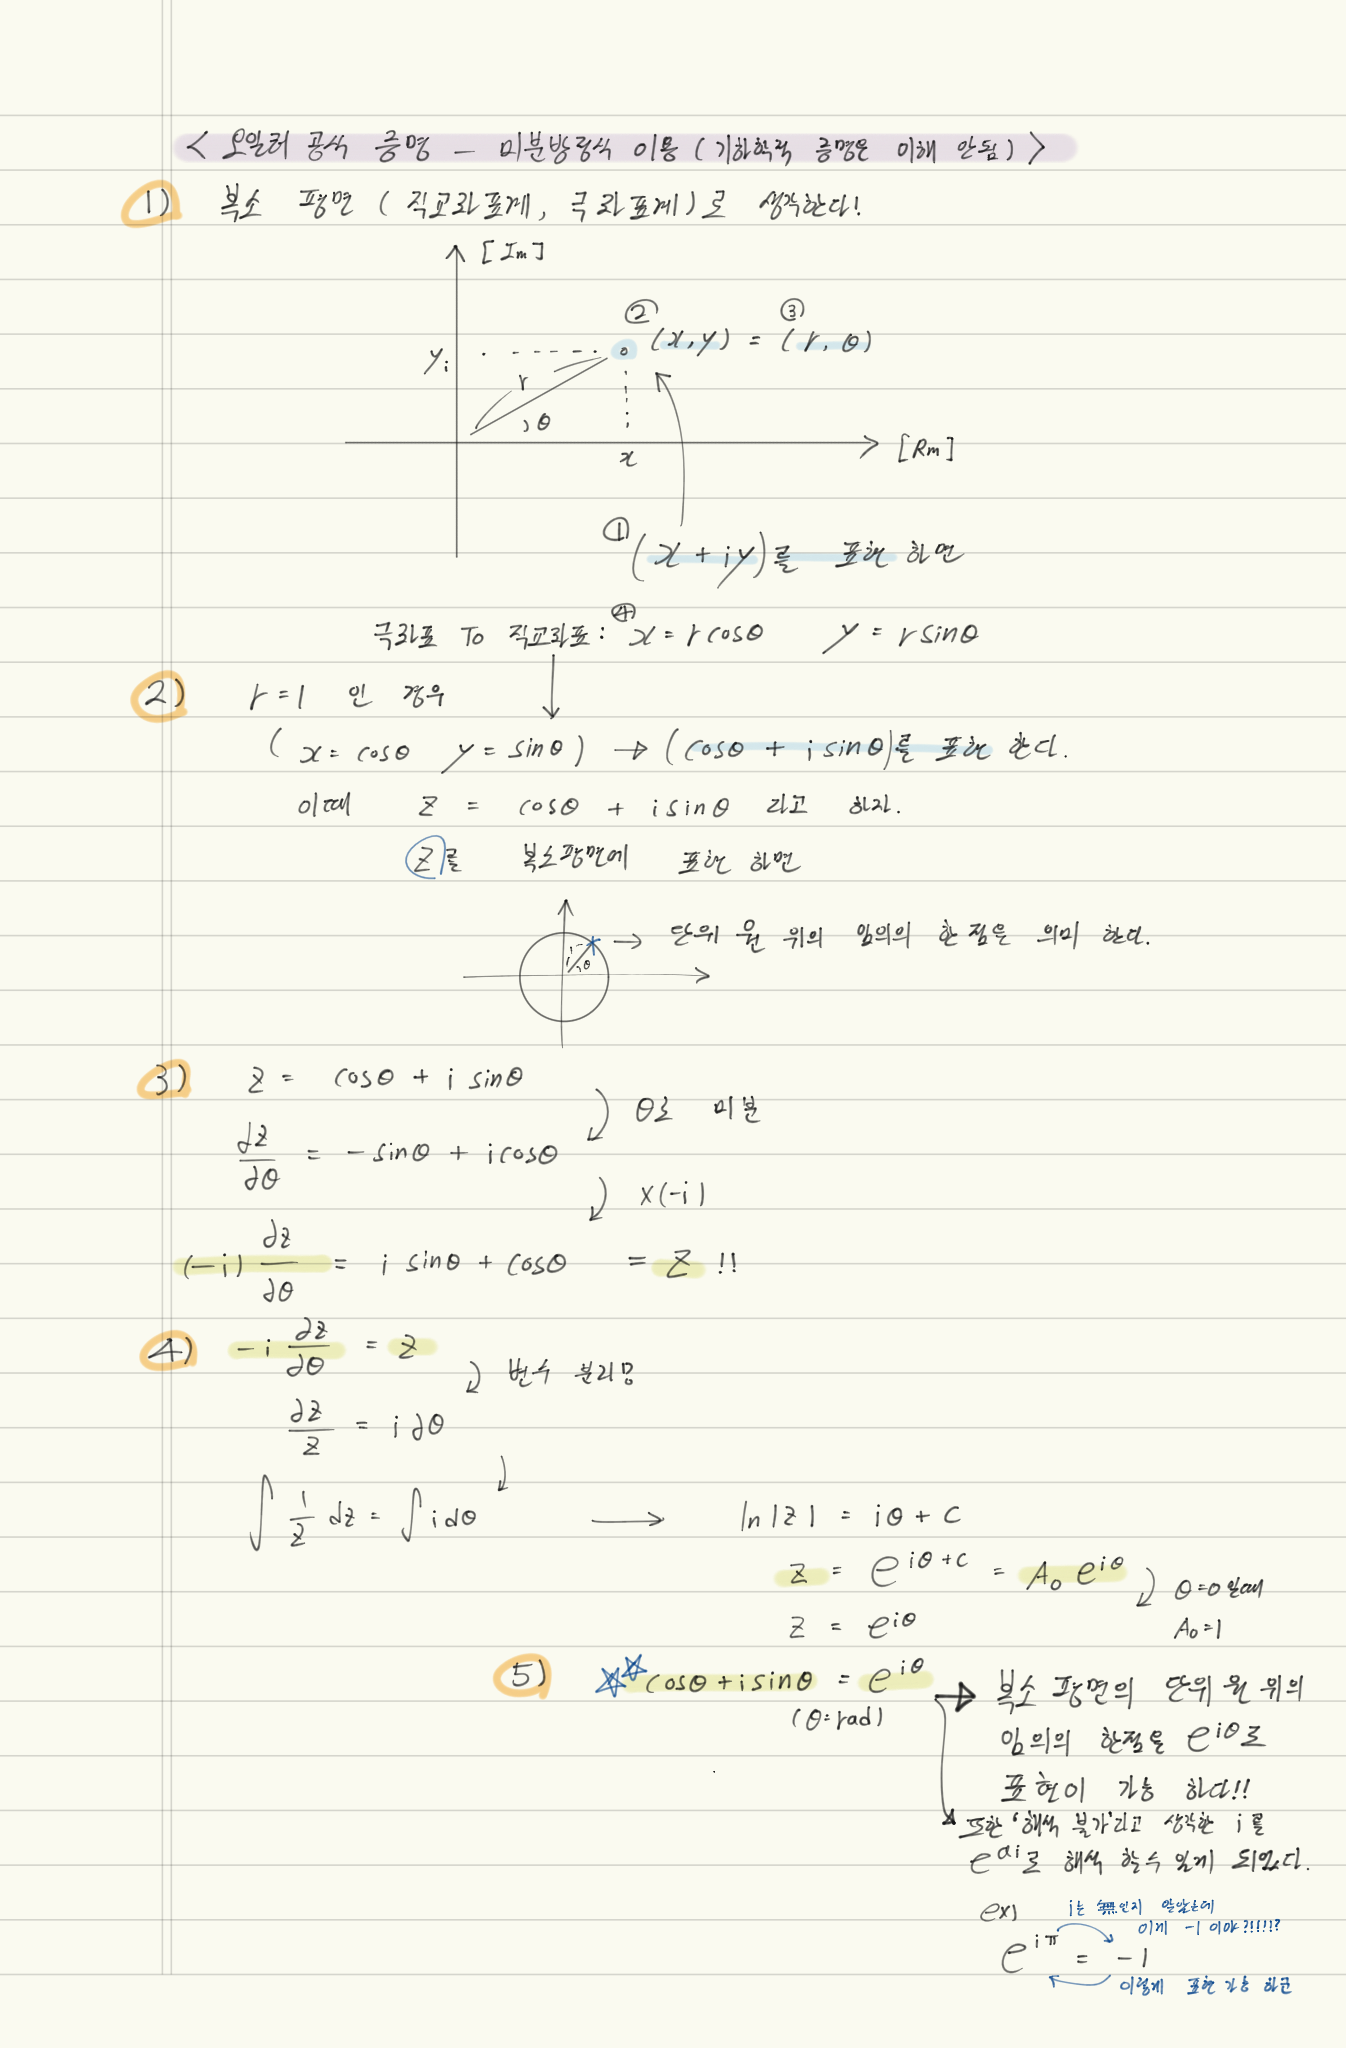 < 오일러 공식 증명 - 미분방정식 이용 (기하학적 증명은 이해 안됨) >
1) 복소 평면 ( 직교좌표계, 극좌표계)로 생각한다!
[Im]
② ③
(x,y) = (r, θ)
yi
r
θ
x
[Rm]
① (x + iy)를 표현 하면
극좌표 To 직교좌표: ④ x = r cosθ y = r sinθ
2) r = 1 인 경우
( x = cosθ y = sinθ ) → (cosθ + i sinθ)를 표현 한다.
이때 z = cosθ + i sinθ 라고 하자.
z를 복소평면에 표현 하면
1 θ → 단위 원 위의 임의의 한 점을 의미 한다.
3) z = cosθ + i sinθ
θ로 미분
∂z/∂θ = - sinθ + i cosθ
x(-i)
(-i) ∂z/∂θ = i sinθ + cosθ = z !!
4) -i ∂z/∂θ = z
변수 분리망
∂z/z = i ∂θ
∫ 1/z dz = ∫ i dθ → ln|z| = iθ + C
z = e^{iθ+C} = A₀ e^{iθ}
θ=0 일때
z = e^{iθ} A₀=1
5) ☆☆ cosθ + i sinθ = e^{iθ}
(θ=rad)
→ 복소 평면의 단위 원 위의
임의의 한점을 e^{iθ}로
표현이 가능 하다!!
또한 '해석 불가'라고 생각한 i를
e^{ai}로 해석 할수 있게 되었다.
ex)
i는 無인지 알았는데
이게 -1 이야?!!!!?
e^{iπ} = -1
이렇게 표현 가능 하군